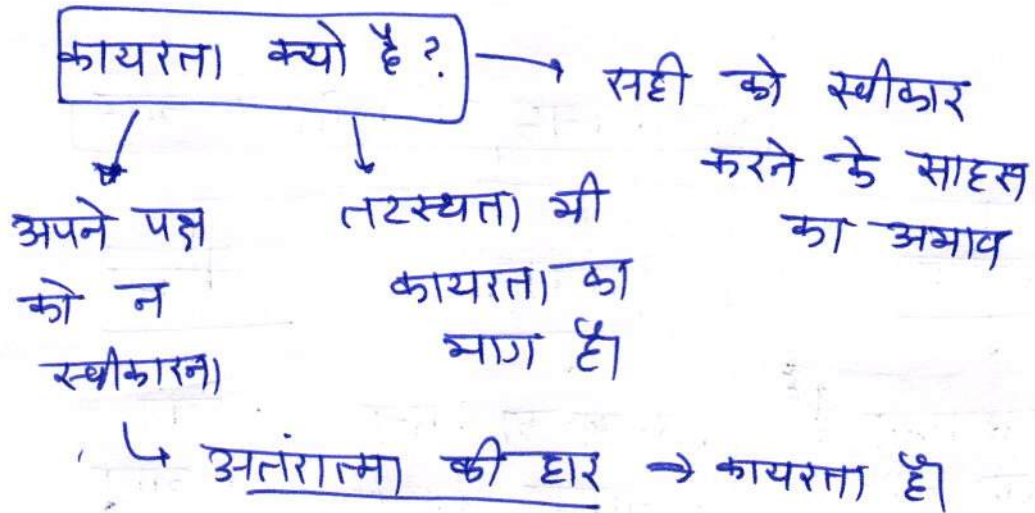 कायरता क्यो है?
सही को स्वीकार
करने के साहस
का अभाव
अपने पक्ष
को न
स्वीकारना
तटस्थता भी
कायरता का
भाग है।
अतंरात्मा की हार → कायरता है।